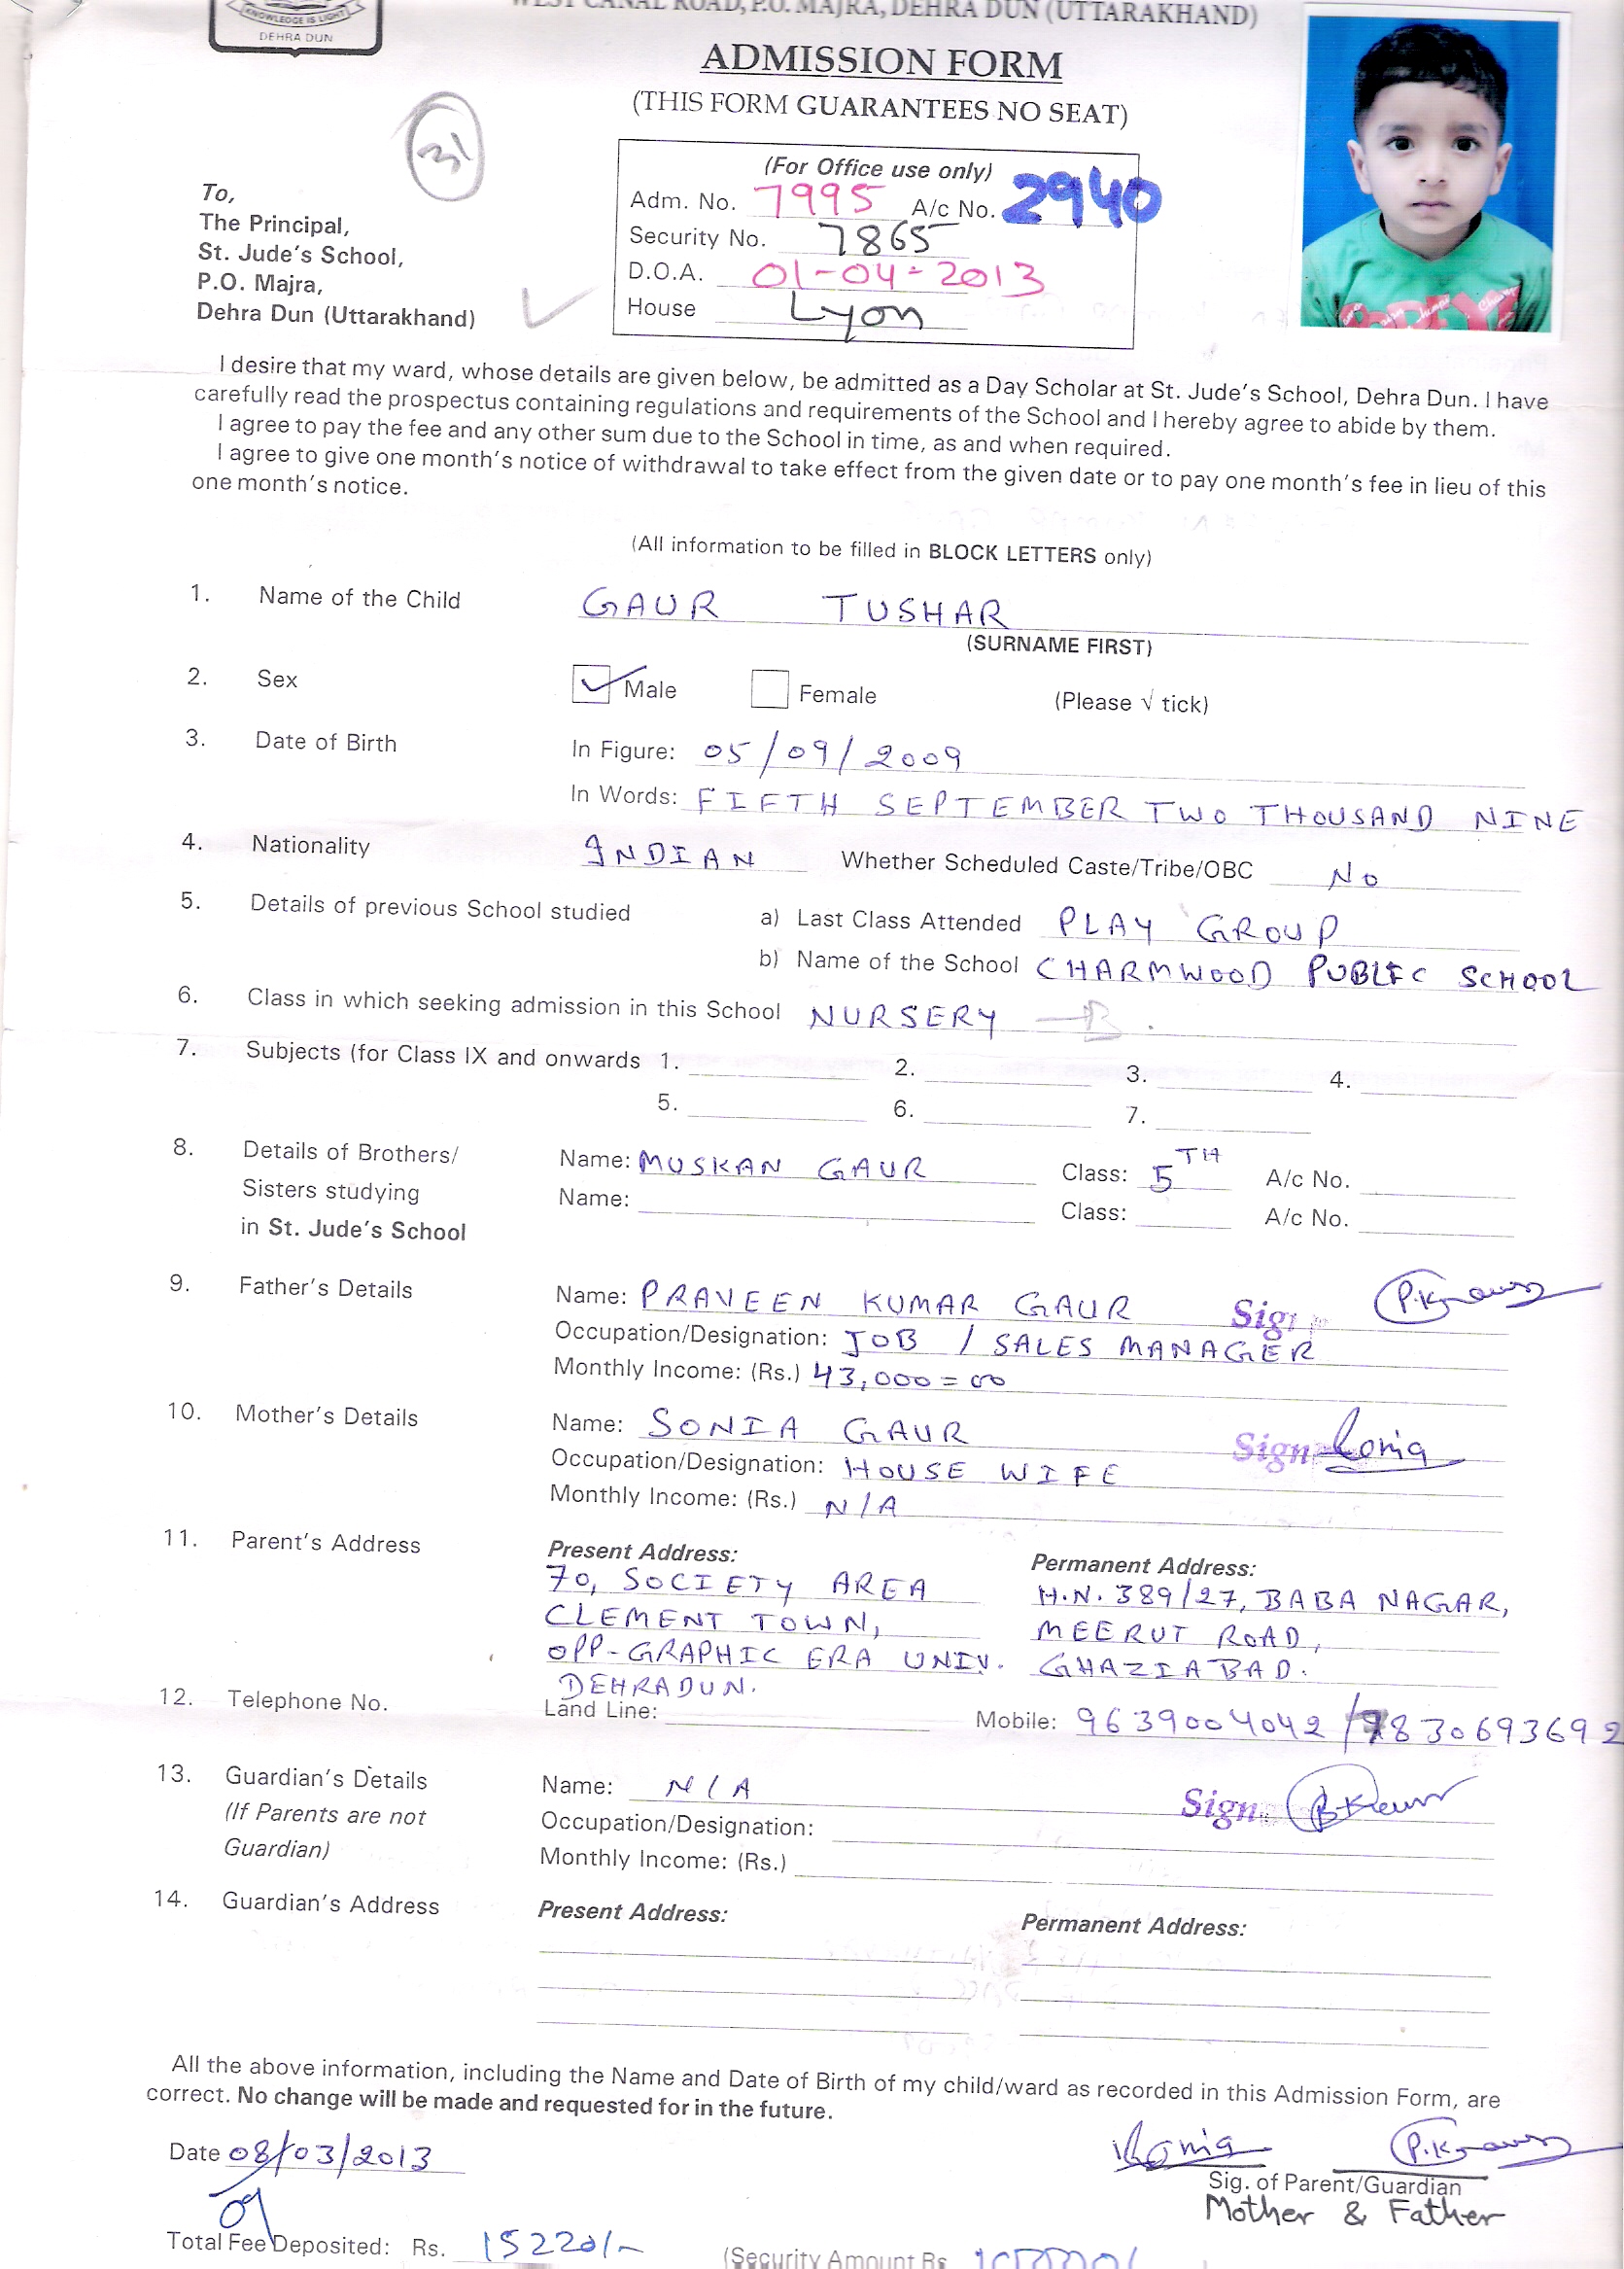 KNOWLEDGE IS LIGHT
DEHRA DUN
WEST CANAL ROAD, P.O. MAJRA, DEHRA DUN (UTTARAKHAND)
ADMISSION FORM
(THIS FORM GUARANTEES NO SEAT)
31
(For Office use only)
Adm. No. 7995 A/c No. 2940
Security No. 7865
D.O.A. 01-04-2013
House Lyon
To,
The Principal,
St. Jude's School,
P.O. Majra,
Dehra Dun (Uttarakhand)
I desire that my ward, whose details are given below, be admitted as a Day Scholar at St. Jude's School, Dehra Dun. I have
carefully read the prospectus containing regulations and requirements of the School and I hereby agree to abide by them.
I agree to pay the fee and any other sum due to the School in time, as and when required.
I agree to give one month's notice of withdrawal to take effect from the given date or to pay one month's fee in lieu of this
one month's notice.
(All information to be filled in BLOCK LETTERS only)
1. Name of the Child GAUR TUSHAR
(SURNAME FIRST)
2. Sex Male Female (Please √ tick)
3. Date of Birth In Figure: 05/09/2009
In Words: FIFTH SEPTEMBER TWO THOUSAND NINE
4. Nationality INDIAN Whether Scheduled Caste/Tribe/OBC NO
5. Details of previous School studied a) Last Class Attended PLAY GROUP
b) Name of the School CHARMWOOD PUBLIC SCHOOL
6. Class in which seeking admission in this School NURSERY - B
7. Subjects (for Class IX and onwards 1. 2. 3. 4.
5. 6. 7.
8. Details of Brothers/ Name: MUSKAN GAUR Class: 5TH A/c No.
Sisters studying Name: Class: A/c No.
in St. Jude's School
9. Father's Details Name: PRAVEEN KUMAR GAUR Sign
Occupation/Designation: JOB / SALES MANAGER
Monthly Income: (Rs.) 43,000=00
10. Mother's Details Name: SONIA GAUR Sign Sonia
Occupation/Designation: HOUSE WIFE
Monthly Income: (Rs.) N/A
11. Parent's Address Present Address: Permanent Address:
70, SOCIETY AREA H.N. 389/27, BABA NAGAR,
CLEMENT TOWN, MEERUT ROAD,
OPP-GRAPHIC ERA UNIV. GHAZIABAD.
DEHRADUN.
12. Telephone No. Land Line: Mobile: 9639004042 / 7830693692
13. Guardian's Details Name: N/A Sign.
(If Parents are not Occupation/Designation:
Guardian) Monthly Income: (Rs.)
14. Guardian's Address Present Address: Permanent Address:
All the above information, including the Name and Date of Birth of my child/ward as recorded in this Admission Form, are
correct. No change will be made and requested for in the future.
Date 08/03/2013 Sonia
09 Sig. of Parent/Guardian
Mother & Father
Total Fee Deposited: Rs. 15220/- (Security Amount Rs